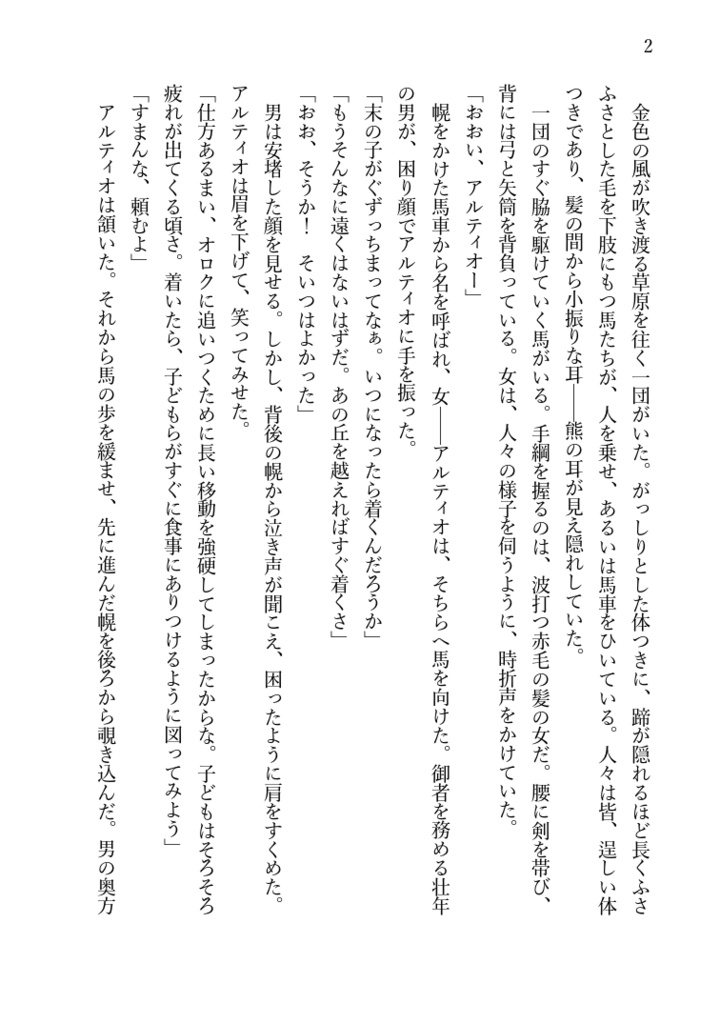 2
　金色の風が吹き渡る草原を往く一団がいた。がっしりとした体つきに、蹄が隠れるほど長くふさ
ふさとした毛を下肢にもつ馬たちが、人を乗せ、あるいは馬車をひいている。人々は皆、逞しい体
つきであり、髪の間から小振りな耳――熊の耳が見え隠れしていた。
　一団のすぐ脇を駆けていく馬がいる。手綱を握るのは、波打つ赤毛の髪の女だ。腰に剣を帯び、
背には弓と矢筒を背負っている。女は、人々の様子を伺うように、時折声をかけていた。
「おおい、アルティオー」
　幌をかけた馬車から名を呼ばれ、女――アルティオは、そちらへ馬を向けた。御者を務める壮年
の男が、困り顔でアルティオに手を振った。
「末の子がぐずっちまってなぁ。いつになったら着くんだろうか」
「もうそんなに遠くはないはずだ。あの丘を越えればすぐ着くさ」
「おお、そうか！　そいつはよかった」
　男は安堵した顔を見せる。しかし、背後の幌から泣き声が聞こえ、困ったように肩をすくめた。
アルティオは眉を下げて、笑ってみせた。
「仕方あるまい、オロクに追いつくために長い移動を強硬してしまったからな。子どもはそろそろ
疲れが出てくる頃さ。着いたら、子どもらがすぐに食事にありつけるように図ってみよう」
「すまんな、頼むよ」
　アルティオは頷いた。それから馬の歩を緩ませ、先に進んだ幌を後ろから覗き込んだ。男の奥方